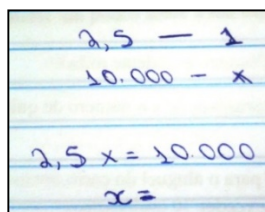 2,5 — 1
10.000 - x
2,5 x = 10.000
x =